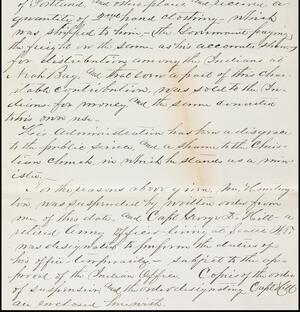 of Portland, and other places and received a
quantity of 2nd hand clothing - which
was shipped to him - (the Government paying
the freight on the same as his accounts show)
for distribution among the Indians at
Neah Bay, and that some a part of this char-
itable contribution, was sold to the In-
dians for money and the same converted
to his own use.
His Administration has been a disgrace
to the public service and a shame to the Chris-
tian Church in which he stands as a min-
ister.
For the reasons above given, Mr. Huntington
was suspended by written order from
me of this date, and Capt George D. Hill - a
retired Army officer - living at Seattle W.T.
was designated to perform the duties of
his office temporarily - subject to the ap-
proval of the Indian Office. Copies of the order
of suspension and the order designating Capt Hill
are enclosed herewith.